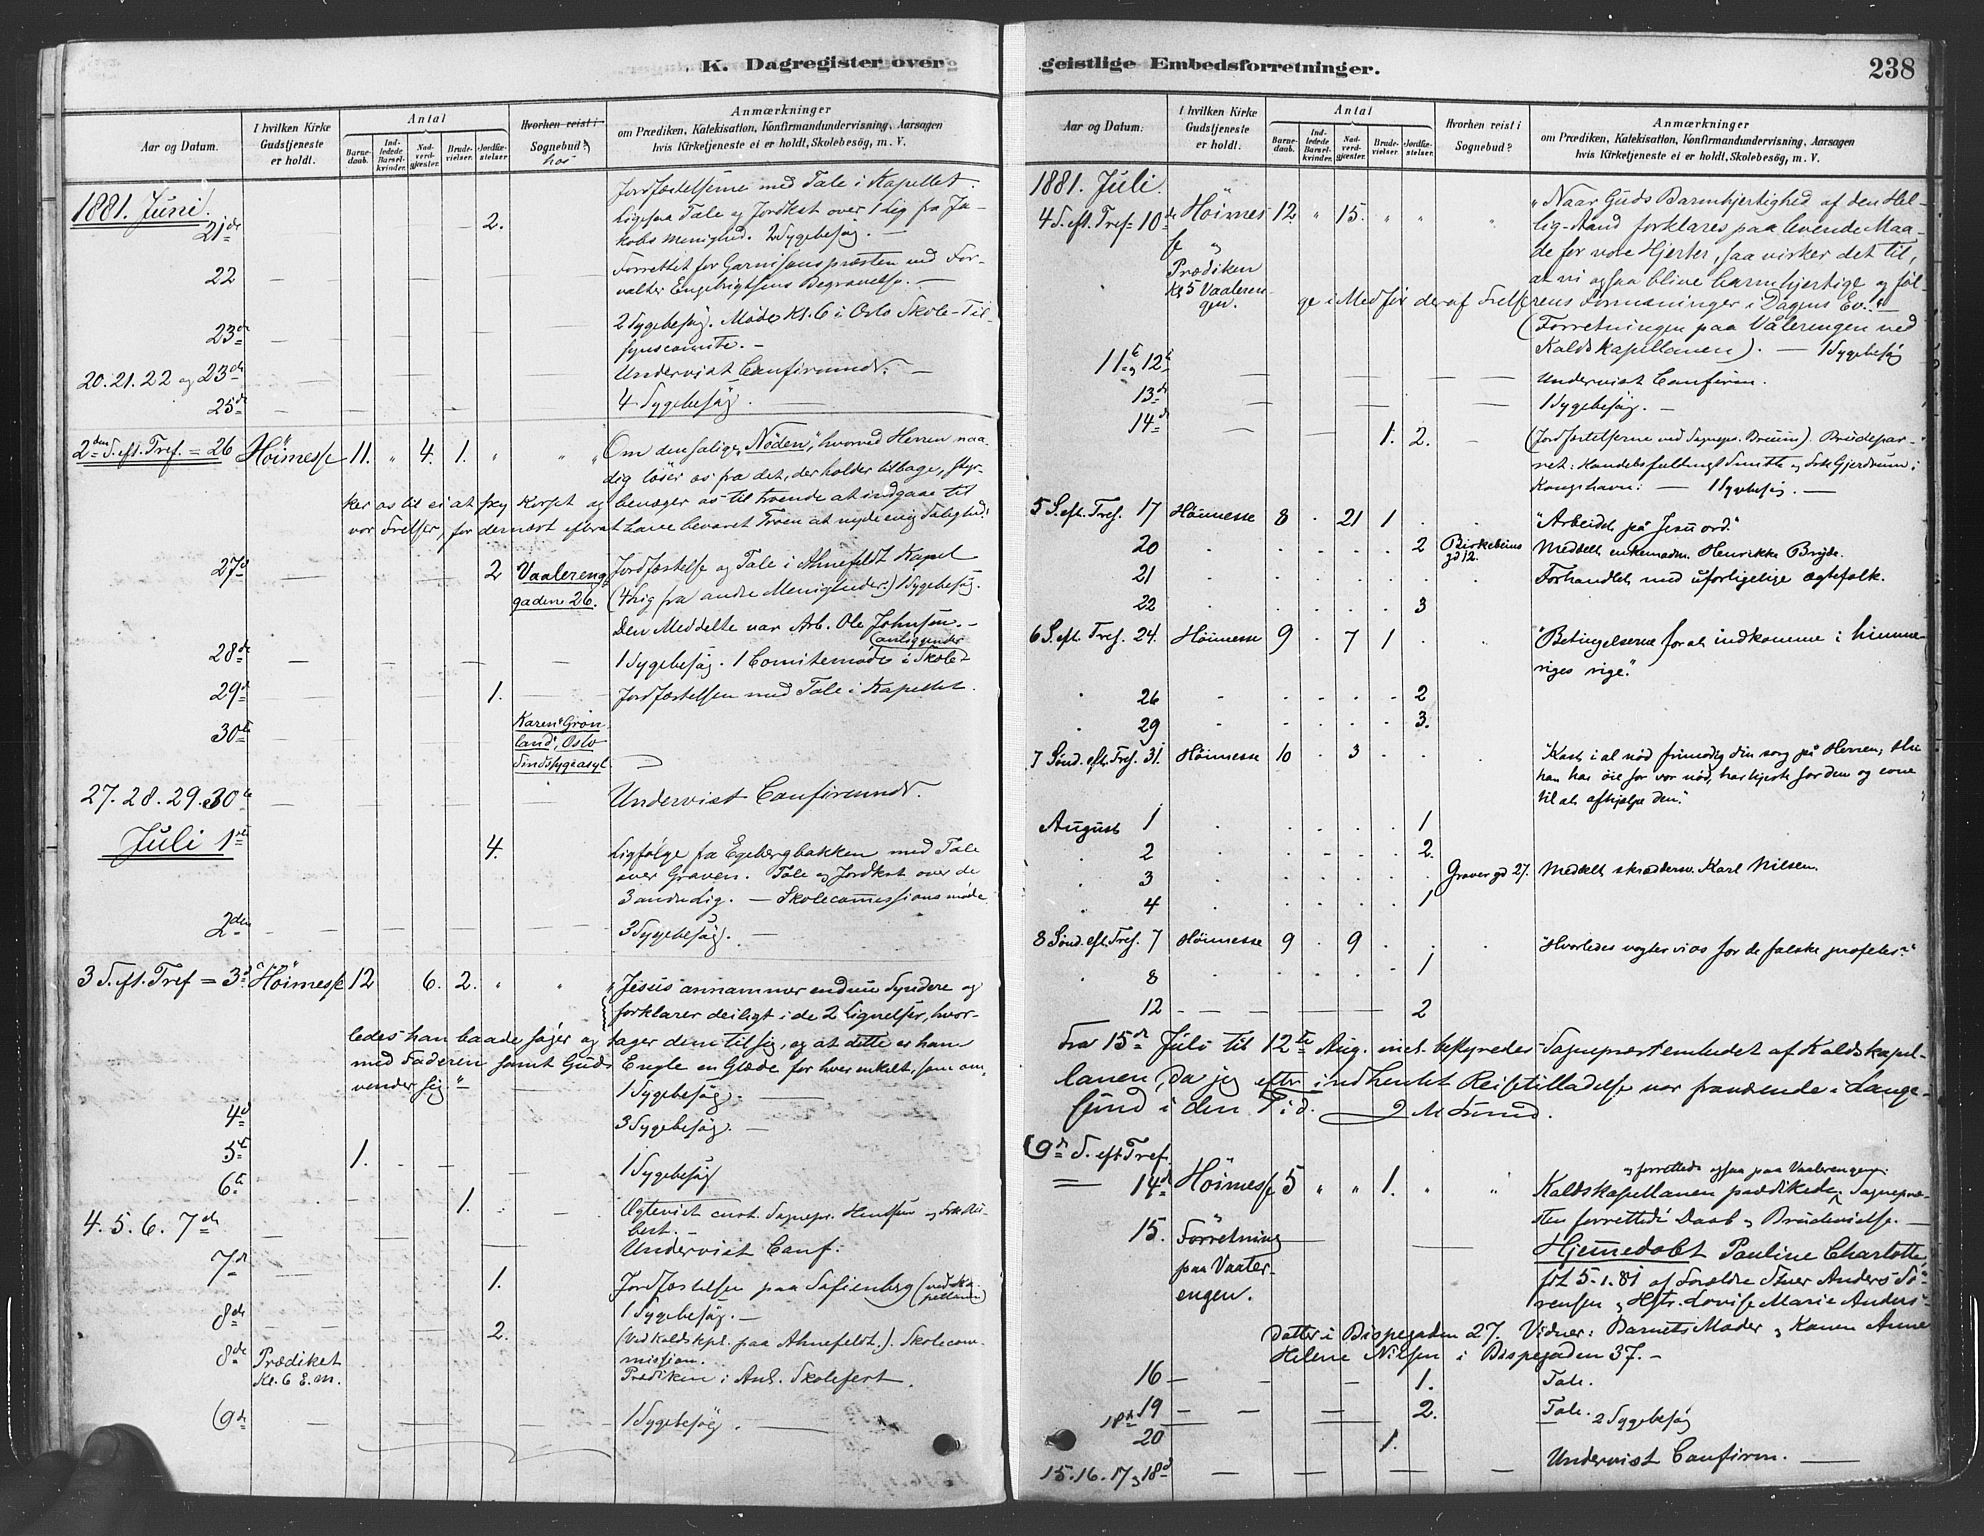 K. Dagregister over
Aar og Datum.
I hvilken Kirke Gudstjeneste er holdt.
Antal
Barnedaab.
Indledede Barselkvinder.
Nadverdgjester.
Brudevielser.
Jordfæstelser
Hvorhen reist i Sognebud?
hos
Anmærkninger
om Prædiken, Katekisation, Konfirmandundervisning, Aarsagen
hvis Kirketjeneste ei er holdt, Skolebesøg, m. V.
1881. Juni.
21de — — — 2. Jordfæstelserne med Tale i Kapellet.
Ligesaa Tale og Jordkast over 1 Lig fra Ja-
kobs menighed. 2 Sygebesøg. —
22 Forrettet for Garnisonspræsten ved For-
valter Engebrigtsens Begravelse. —
23de 2 Sygebesøg. Møde Kl. 6 i Oslo Skole-Til-
synscomite. —
20. 21. 22 og 23de Undervist Confirmnd. —
25de 4 Sygebesøg. —
2den S. eft. Tref. = 26 Høimesse 11. " 4. 1. " " "Om den salige "Nöden", hvorved Herren naa-
dig løser os fra det, der holder tilbage, styr-
ker os til ei at sky Korset og bevæger os til troende at indgaae til
vor Frelser, for dernæst efter at have bevaret Troen at nyde evig Salighed."
27de 2 Vaalereng Jordfæstelse og Tale i Ahnefeldt Kapel
gaden 26. (4 Lig fra andre Menigheder.) 1 Sygebesøg.
Den Meddelte var Arb. Ole Johnson. —
28de 1 Sygebesøg. 1 Comitemøde i Skole
29de 1. Jordfæstelsen med Tale i Kapellet.
30te Karen Grön
land, Oslo
Sindssygeasyl. —
27. 28. 29. 30te Undervist Confirmnd.
Juli 1ste 4. Ligfølge fra Egebergbakken med Tale
over Graven. Tale og Jordkast over de
3 andre Lig. — Skolecommissions møde
2den 3 Sygebesøg. —
3 S. eft. Tref = 3de Høimesse 12 6. 2. " " "Jesus annammer endnu Syndere og
forklarer deiligt i de 2 Lignelser, hvor-
ledes han baade søger og tager dem til sig, og at dette er ham
med Faderen samt Guds Engle en Glæde for hver enkelt, som om-
vender sig" 1 Sygebesøg. —
4de 3 Sygebesøg. —
5te 1. 1 Sygebesøg
6te 1. Ægteviet Sognepr.
4. 5. 6. 7de Undervist Conf.
7de 1. Jordfæstelsen paa Sofienberg (ved Ka-
pellanen)
8de 1 Sygebesøg. —
8de Prædiket 2. (Ved Kaldskpl. paa Ahnefeldt.). Skolecom-
Kl. 6 E.m. mission.
Prædiken i Anl. Skolefest.
(9de 1 Sygebesøg. —
geistlige Embedsforretninger.
238
Aar og Datum.
I hvilken Kirke Gudstjeneste er holdt.
Antal
Barnedaab.
Indledede Barselkvinder.
Nadverdgjester.
Brudevielser.
Jordfæstelser.
Hvorhen reist i Sognebud?
Anmærkninger
om Prædiken, Katekisation, Konfirmandundervisning, Aarsagen
hvis Kirketjeneste ei er holdt, Skolebesøg, m. V.
1881. Juli.
4 S. eft. Tref = 10de Høimes 12. " 15. " " " "Naar Guds Barmhjertighed af den Hel-
se lig-Aand forklares paa levende Maa-
Prædiken de for vore Hjerter, saa virker det til,
Kl 5 Vaaleren- at vi ogsaa blive barmhjertige og føl-
gen. ge i Medfør deraf Frelserens Formaninger i Dagens Ev."
(Forretningen paa Vålerengen ved
Kaldskapellanen). — 1 Sygebesøg
11te og 12te Undervist Confirm.
13de 1 Sygebesøg. —
14de 1. 2. (Jordfæstelserne ved Sognepr. Bruun). Brudepar-
ret: Handelsfuldmgt Smith og Frk Gjerdrum i
Kongshavn. — 1 Sygebesøg. —
5 S. eft. Tref. 17 Høimesse 8 . 21 1 "Arbeidet på Jesu ord."
20 2 Birkebeins Meddelt enkemadm. Henrikke Bryde.
gd 12.
21 Forhandlet med uforligelige ægtefolk.
22 3
6 S. eft. Tref. 24. Høimesse 9 . 7 1 "Betingelserne for at indkomme i himme-
riges rige."
26 2
29 3.
7 Sønd. eft. Tref. 31. Høimesse 10 . 3 "Kast i al nød frimodig din sorg på Herren, thi
han har øie for vor nød, har hjerte for den og evne
til at afhjælpe den."
August 1 1
2 2.
3 Graver gd 27. Meddelt skrædersv. Karl Nilsen.
4 1
8 Sønd. eft. Tref. 7 Høimesse 9 . 9 "Hvorledes vogter vi os for de falske profeter?"
8 1
12 2
Fra 15de Juli til 12te Aug. incl. bestyredes Sognepræstembedet af Kaldskapel-
lanen, da jeg efter indhentet Reisetilladelse var fraværende i Lange-
sund i den Tid. J M Lund.
(9de S. eft Tref.
= 14de Høimesse 5 " " 1. " " Kaldskapellanen prædikede, Sognepræ-
og forrettede ogsaa paa Vaalerengen.
sten forrettede Daab og Brudevielse. —
15. Forretning Hjemmedøbt Pauline Charlotte
paa Vaaler- født 5-1.81 af Forældre Anders Sö-
engen. rensen og Hstr. Lovise Marie Anders-
datter i Bispegaden 27. Vidner: Barnets Moder og Konen Anne
Helene Nilsen i Bispegaden 37. —
16 1. Tale.
18de 19 2. Tale. 2 Sygebesøg
20 1.
15. 16. 17 og 18de Undervist Confirm. —